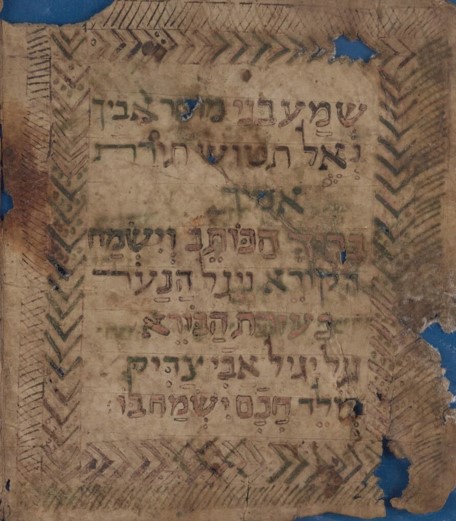 שמע בני מוסר אביך
ואל תטוש תורת
אמיך
הכותב וישמח
הקורא ויגל הנער
בעזרת הנורא
על יגיל אבי צדיק
יולד חכם ישמח בו